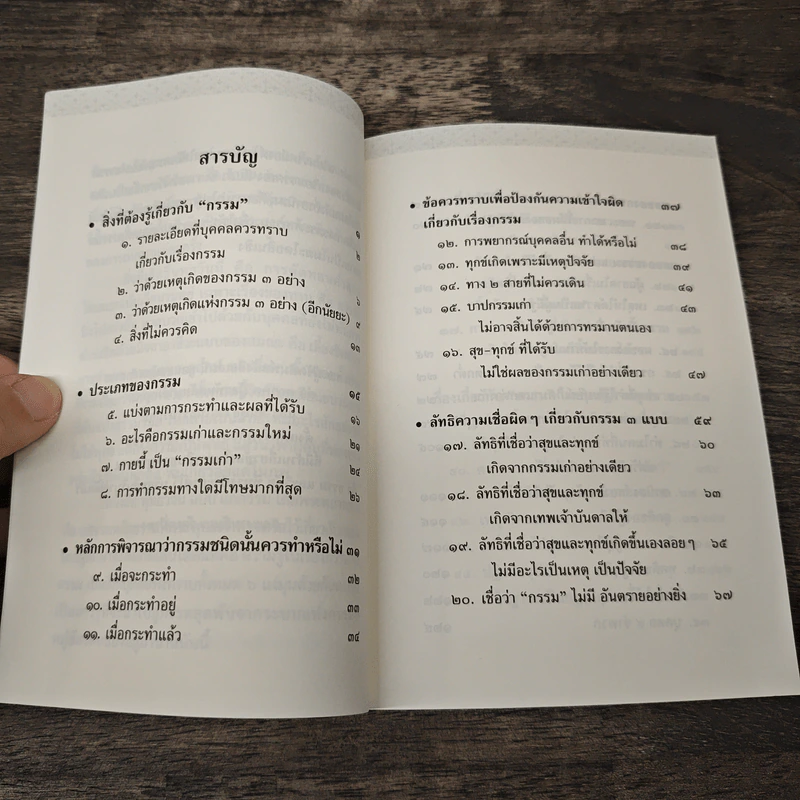 สารบัญ
• สิ่งที่ต้องรู้เกี่ยวกับ “กรรม” ๑
๑. รายละเอียดที่บุคคลควรทราบ ๒
เกี่ยวกับเรื่องกรรม
๒. ว่าด้วยเหตุเกิดของกรรม ๓ อย่าง ๖
๓. ว่าด้วยเหตุเกิดแห่งกรรม ๓ อย่าง (อีกนัยยะ) ๙
๔. สิ่งที่ไม่ควรคิด ๑๓
• ประเภทของกรรม ๑๕
๕. แบ่งตามการกระทำและผลที่ได้รับ ๑๖
๖. อะไรคือกรรมเก่าและกรรมใหม่ ๒๑
๗. กายนี้ เป็น “กรรมเก่า” ๒๔
๘. การทำกรรมทางใดมีโทษมากที่สุด ๒๖
• หลักการพิจารณาว่ากรรมชนิดนั้นควรทำหรือไม่ ๓๑
๙. เมื่อจะกระทำ ๓๒
๑๐. เมื่อกระทำอยู่ ๓๓
๑๑. เมื่อกระทำแล้ว ๓๔
• ข้อควรทราบเพื่อป้องกันความเข้าใจผิด ๓๗
เกี่ยวกับเรื่องกรรม
๑๒. การพยากรณ์บุคคลอื่น ทำได้หรือไม่ ๓๘
๑๓. ทุกข์เกิดเพราะมีเหตุปัจจัย ๓๙
๑๔. ทาง ๒ สายที่ไม่ควรเดิน ๔๑
๑๕. บาปกรรมเก่า ๔๓
ไม่อาจสิ้นได้ด้วยการทรมานตนเอง
๑๖. สุข-ทุกข์ ที่ได้รับ
ไม่ใช่ผลของกรรมเก่าอย่างเดียว ๔๗
• ลัทธิความเชื่อผิด ๆ เกี่ยวกับกรรม ๓ แบบ ๕๙
๑๗. ลัทธิที่เชื่อว่าสุขและทุกข์ ๖๐
เกิดจากกรรมเก่าอย่างเดียว
๑๘. ลัทธิที่เชื่อว่าสุขและทุกข์ ๖๓
เกิดจากเทพเจ้าบันดาลให้
๑๙. ลัทธิที่เชื่อว่าสุขและทุกข์เกิดขึ้นเองลอย ๆ ๖๕
ไม่มีอะไรเป็นเหตุ เป็นปัจจัย
๒๐. เชื่อว่า “กรรม” ไม่มี อันตรายอย่างยิ่ง ๖๗